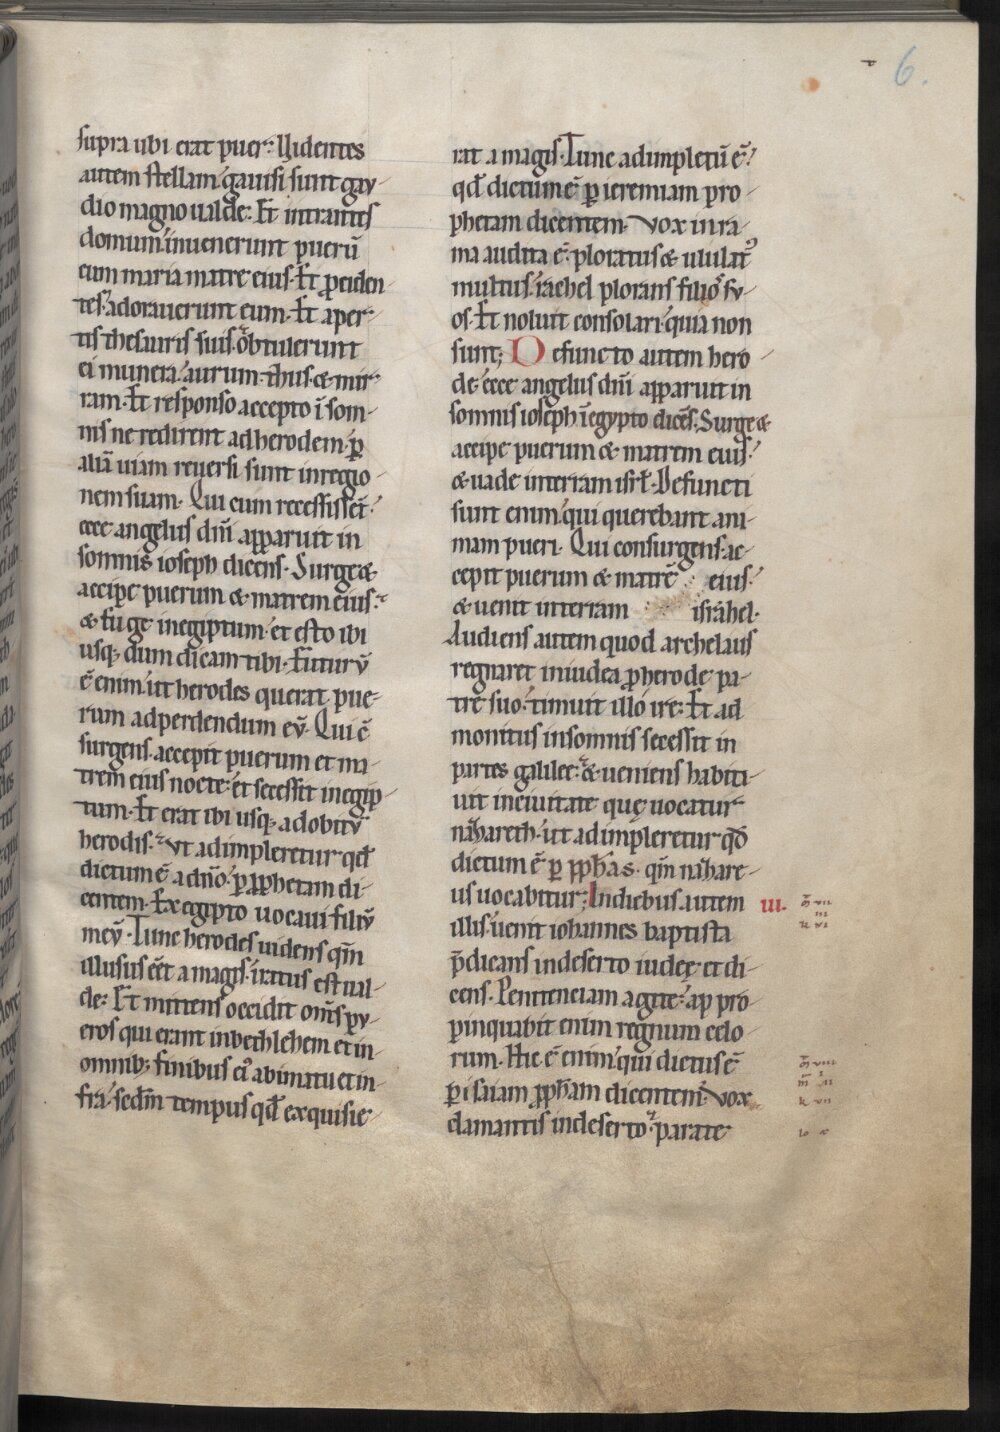 6.
supra ubi erat puer: Videntes
autem stellam gauisi sunt gau-
dio magno ualde: Et intrantes
domum inuenerunt puerū
cum maria matre eius. Et prociden-
tes adorauerunt eum. Et aper-
tis thesauris suis obtulerunt
ei munera. aurum. thus. & mir-
ram. Et responso accepto ī som-
nis ne redirent ad herodem. ꝑ
aliā uiam reuersi sunt in regio-
nem suam. Qui cum recessissēt.
ecce angelus dn̄i apparuit in
somnis ioseph dicens. Surge &
accipe puerum & matrem eius.
& fuge in egiptum. et esto ibi
usq; dum dicam tibi. Futurū
ē enim ut herodes querat pue-
rum ad perdendum eū. Qui c̄
surgens. accepit puerum et ma-
trem eius nocte. et secessit in egip-
tum. Et erat ibi usq; ad obitū
herodis. ut adimpleretur qd̄
dictum ē a dn̄o. ꝑ ꝓphetam di-
centem. Ex egipto uocaui filiū
meū. Tunc herodes uidens qm̄
illusus eēt a magis. iratus est ual-
de: Et mittens occidit om̄s pu-
eros qui erant in bethlehem et in
omnib; finibus ei' a bimatu et in-
fra. sedm̄ tempus qd̄ exquisie-
rat a magis. Tunc adimpletū ē.
qd̄ dictum ē ꝑ ieremiam pro-
phetam dicentem. Vox in ra-
ma audita ē. ploratus & ululat'
multus. rachel plorans filios su-
os. Et noluit consolari. quia non
sunt; Defuncto autem hero-
de. ecce angelus dn̄i apparuit in
somnis ioseph ī egypto dicēs. Surge &
accipe puerum & matrem eius.
& uade in terram isrl̄. Defuncti
sunt enim qui querebant ani-
mam pueri. Qui consurgens. ac-
cepit puerum & matrē eius.
& uenit in terram israhel.
Audiens autem quod archelaus
regnaret in iudea ꝓ herode pa-
tre suo. timuit illo ire: Et ad
monitus in somnis secessit in
partes galilee. & ueniens habita-
uit in ciuitate quę uocatur
nazareth. ut adimpleretur qd̄
dictum ē ꝑ ꝓphas. qm̄ nazare-
us uocabitur; In diebus autem III.
illis. uenit iohannes baptista
p̄dicans in deserto iudeę. et di-
cens. Penitenciam agite. ap pro-
pinquabit enim regnum celo-
rum. Hic ē enim qui dictus ē
ꝑ isaiam ꝓpham dicentem. Vox
clamantis in deserto. parate